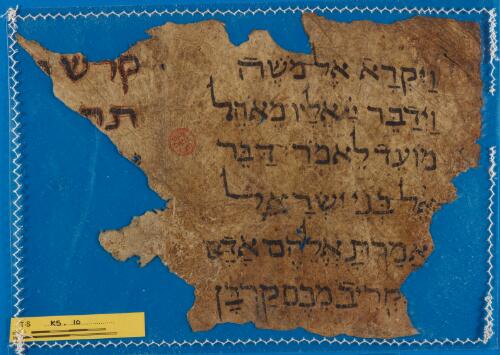 וַיִקְרָא אֶל מֹשֶה
וַיְדַבֵר יי אֵלָיו מֵאֹהֶל
מוֹעֵד לֵאמֹר דַבֵר
אֶל בְנֵי יִשְרָאֵל
אָמַרְתָ אֲלֵהֶם אָדָם
יַקְרִיב מִכֶם קָרְבָן
קרש
תר
T-S K5.10